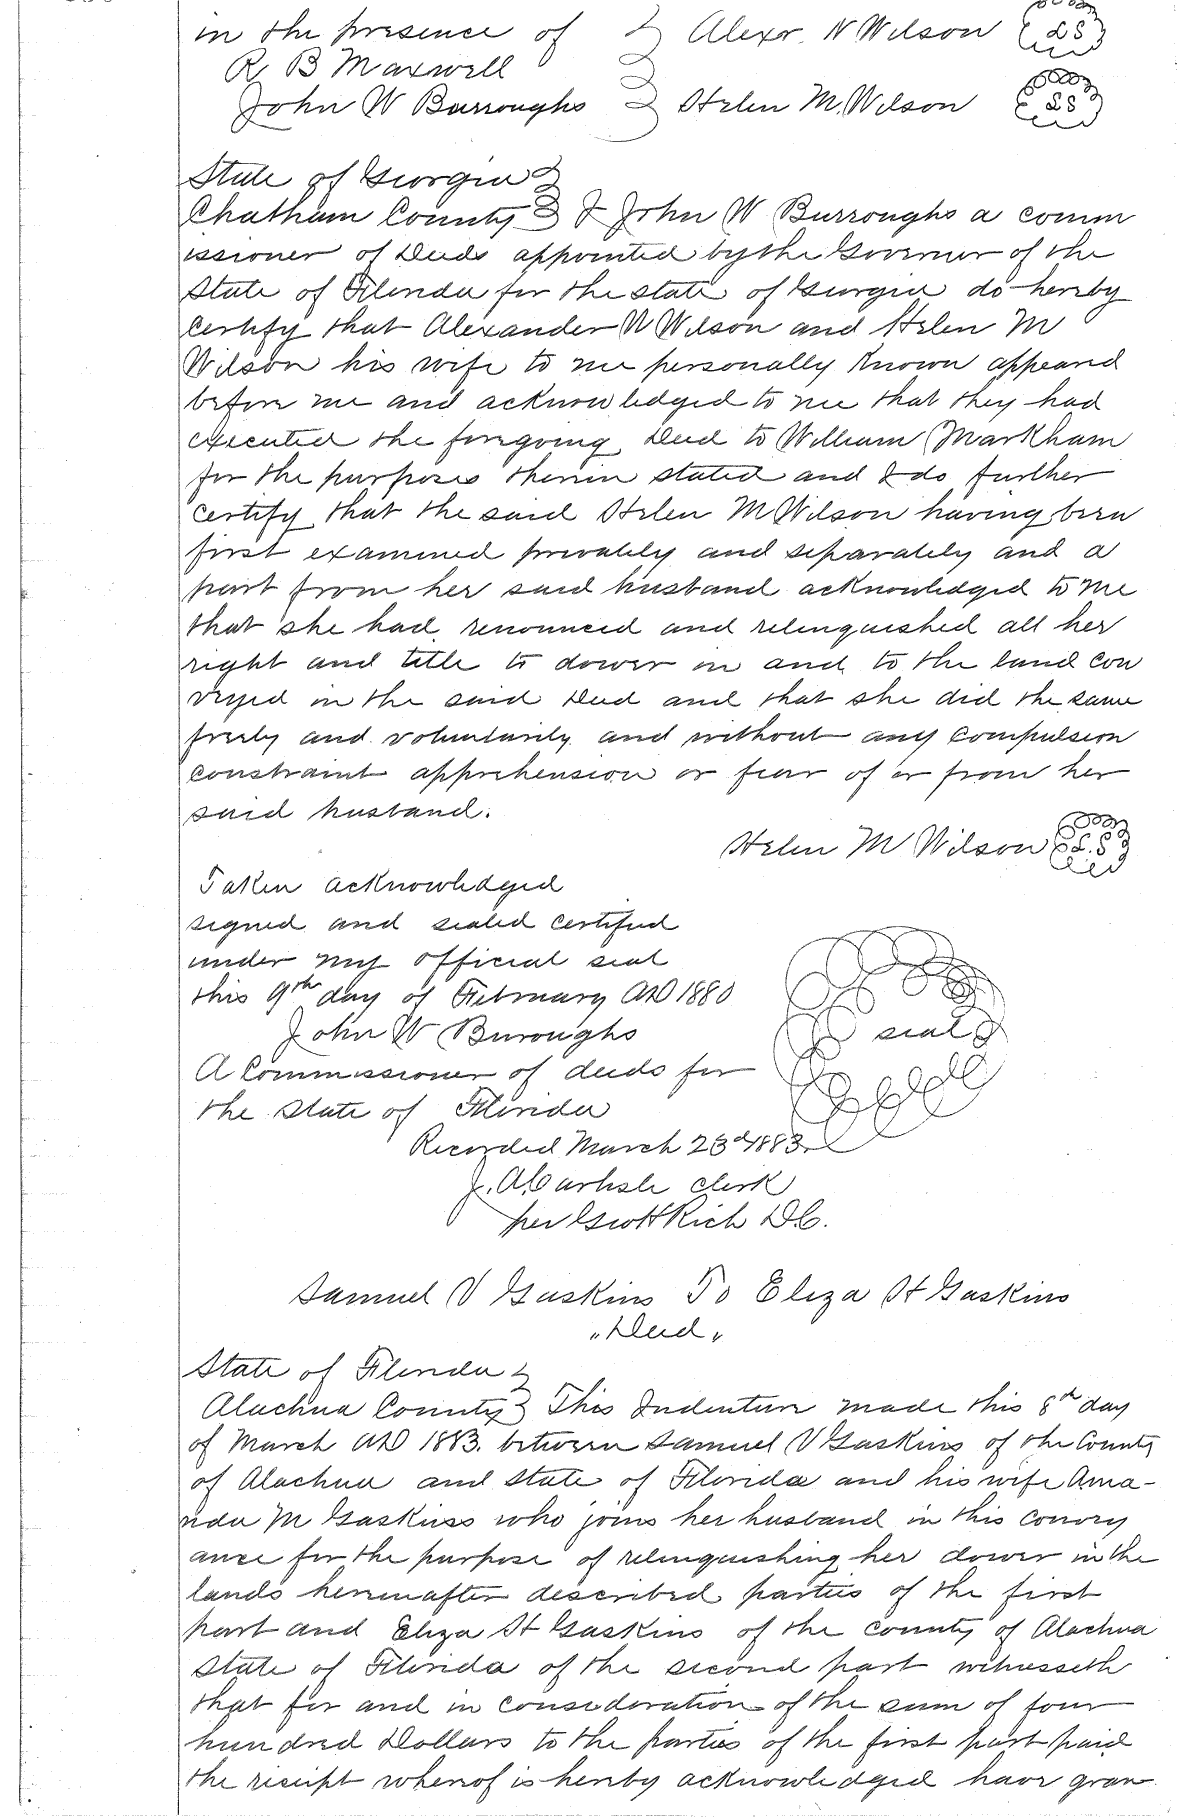 in the presence of } Alexr. N Wilson LS
R B Maxwell
John W Burroughs } Helen M. Wilson LS
State of Georgia }
Chatham County } I John W Burroughs a comm
issioner of Deeds appointed by the Governor of the
State of Florida for the state of Georgia do hereby
Certify that Alexander N Wilson and Helen M
Wilson his wife to me personally known appeared
before me and acknowledged to me that they had
executed the foregoing Deed to William Markham
for the purposes therein stated and I do further
Certify that the said Helen M Wilson having been
first examined privately and separately and a
part from her said husband acknowledged to me
that she had renounced and relinquished all her
right and title to dower in and to the land con
veyed in the said Deed and that she did the same
freely and voluntarily and without any compulsion
constraint apprehension or fear of or from her
said husband.
Helen M Wilson L.S
Taken acknowledged
signed and sealed certified
under my official seal
this 9th day of February AD 1880
John W Burroughs
seal
A Commissioner of deeds for
the State of Florida
Recorded March 23d 1883
J. A. Carlisle clerk
per Geo H Rich D.C.
Samuel V Gaskins To Eliza H Gaskins
"Deed"
State of Florida }
Alachua County } This Indenture made this 8th day
of March AD 1883. between Samuel V Gaskins of the County
of Alachua and State of Florida and his wife Ama-
nda M Gaskins who joins her husband in this convey
ance for the purpose of relinquishing her dower in the
lands hereinafter described parties of the first
part and Eliza H Gaskins of the county of Alachua
State of Florida of the second part witnesseth
that for and in consideration of the sum of four
hundred Dollars to the parties of the first part paid
the receipt whereof is hereby acknowledged have gran